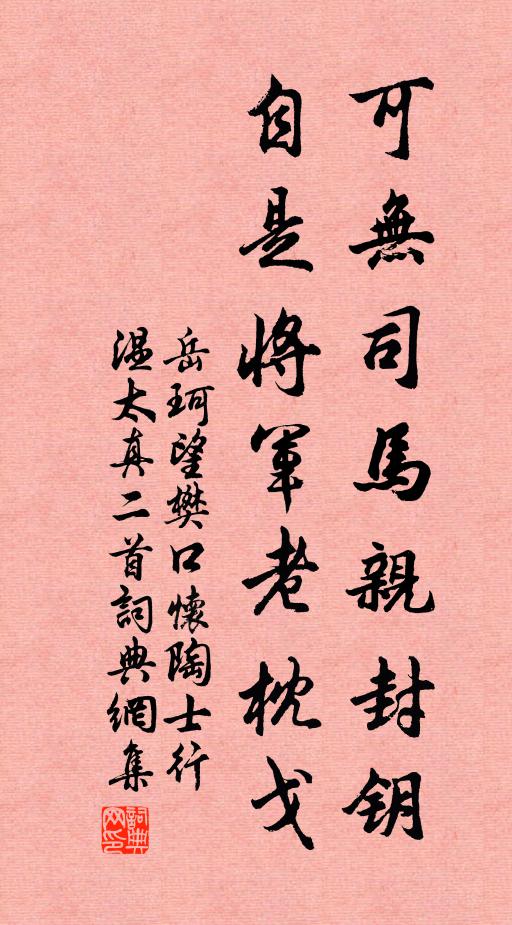 可無司馬親封鈅
自是將軍老枕戈
岳珂望樊口懷陶士行
溫太真二首詞典網集
詞典网印